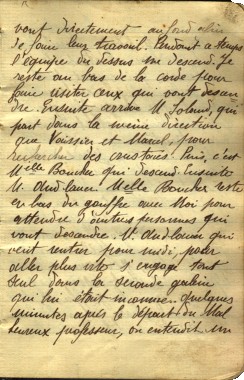 vont directement au fond afin
de faire leur travail. Pendant ce temps
l'équipe du dessus me descend. Je
reste au bas de la corde pour
faire visiter ceux qui vont descen-
dre. Ensuite arrive M. qui
part dans la même direction
que Voissier et Marcel, pour
rechercher des crustacés. Puis, c'est
Melle Boucher qui descend. Ensuite
M. Melle Boucher reste
en bas du gouffre avec Moi pour
attendre d'autres personnes qui
vont descendre. M. qui
veut rentrer pour midi, pour
aller plus vite s'engage tout
seul dans la seconde galerie
qui lui était inconnue. Quelques
minutes après le départ du Mal-
heureux professeur, on entendit un